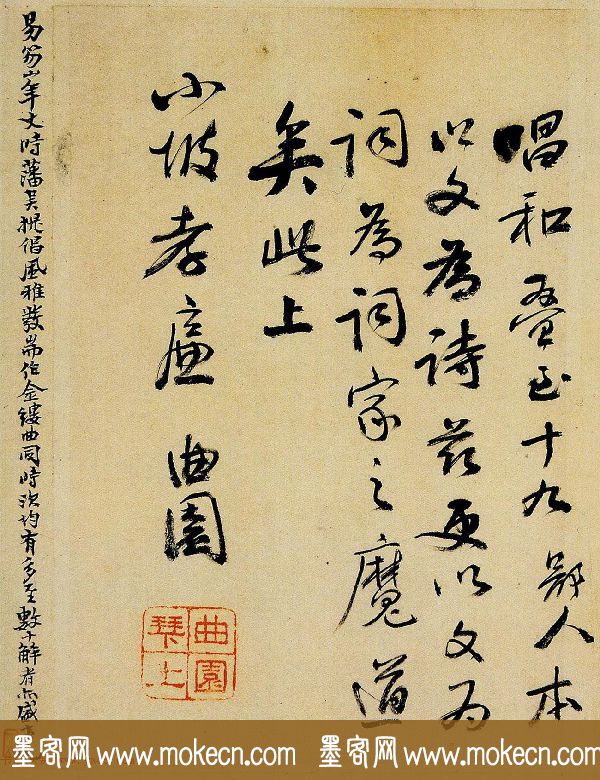 唱和叠至十九鄙人本
以文為詩茲更以文为
词為词家之魔道
矣此上
小坡孝廉 曲園
曲園
琴上
易笏山年丈時藩吴提倡風雅發耑作金縷曲同時次均有多至數十解者亦盛
墨客网 www.mokecn.com 墨客网 www.mokecn.com